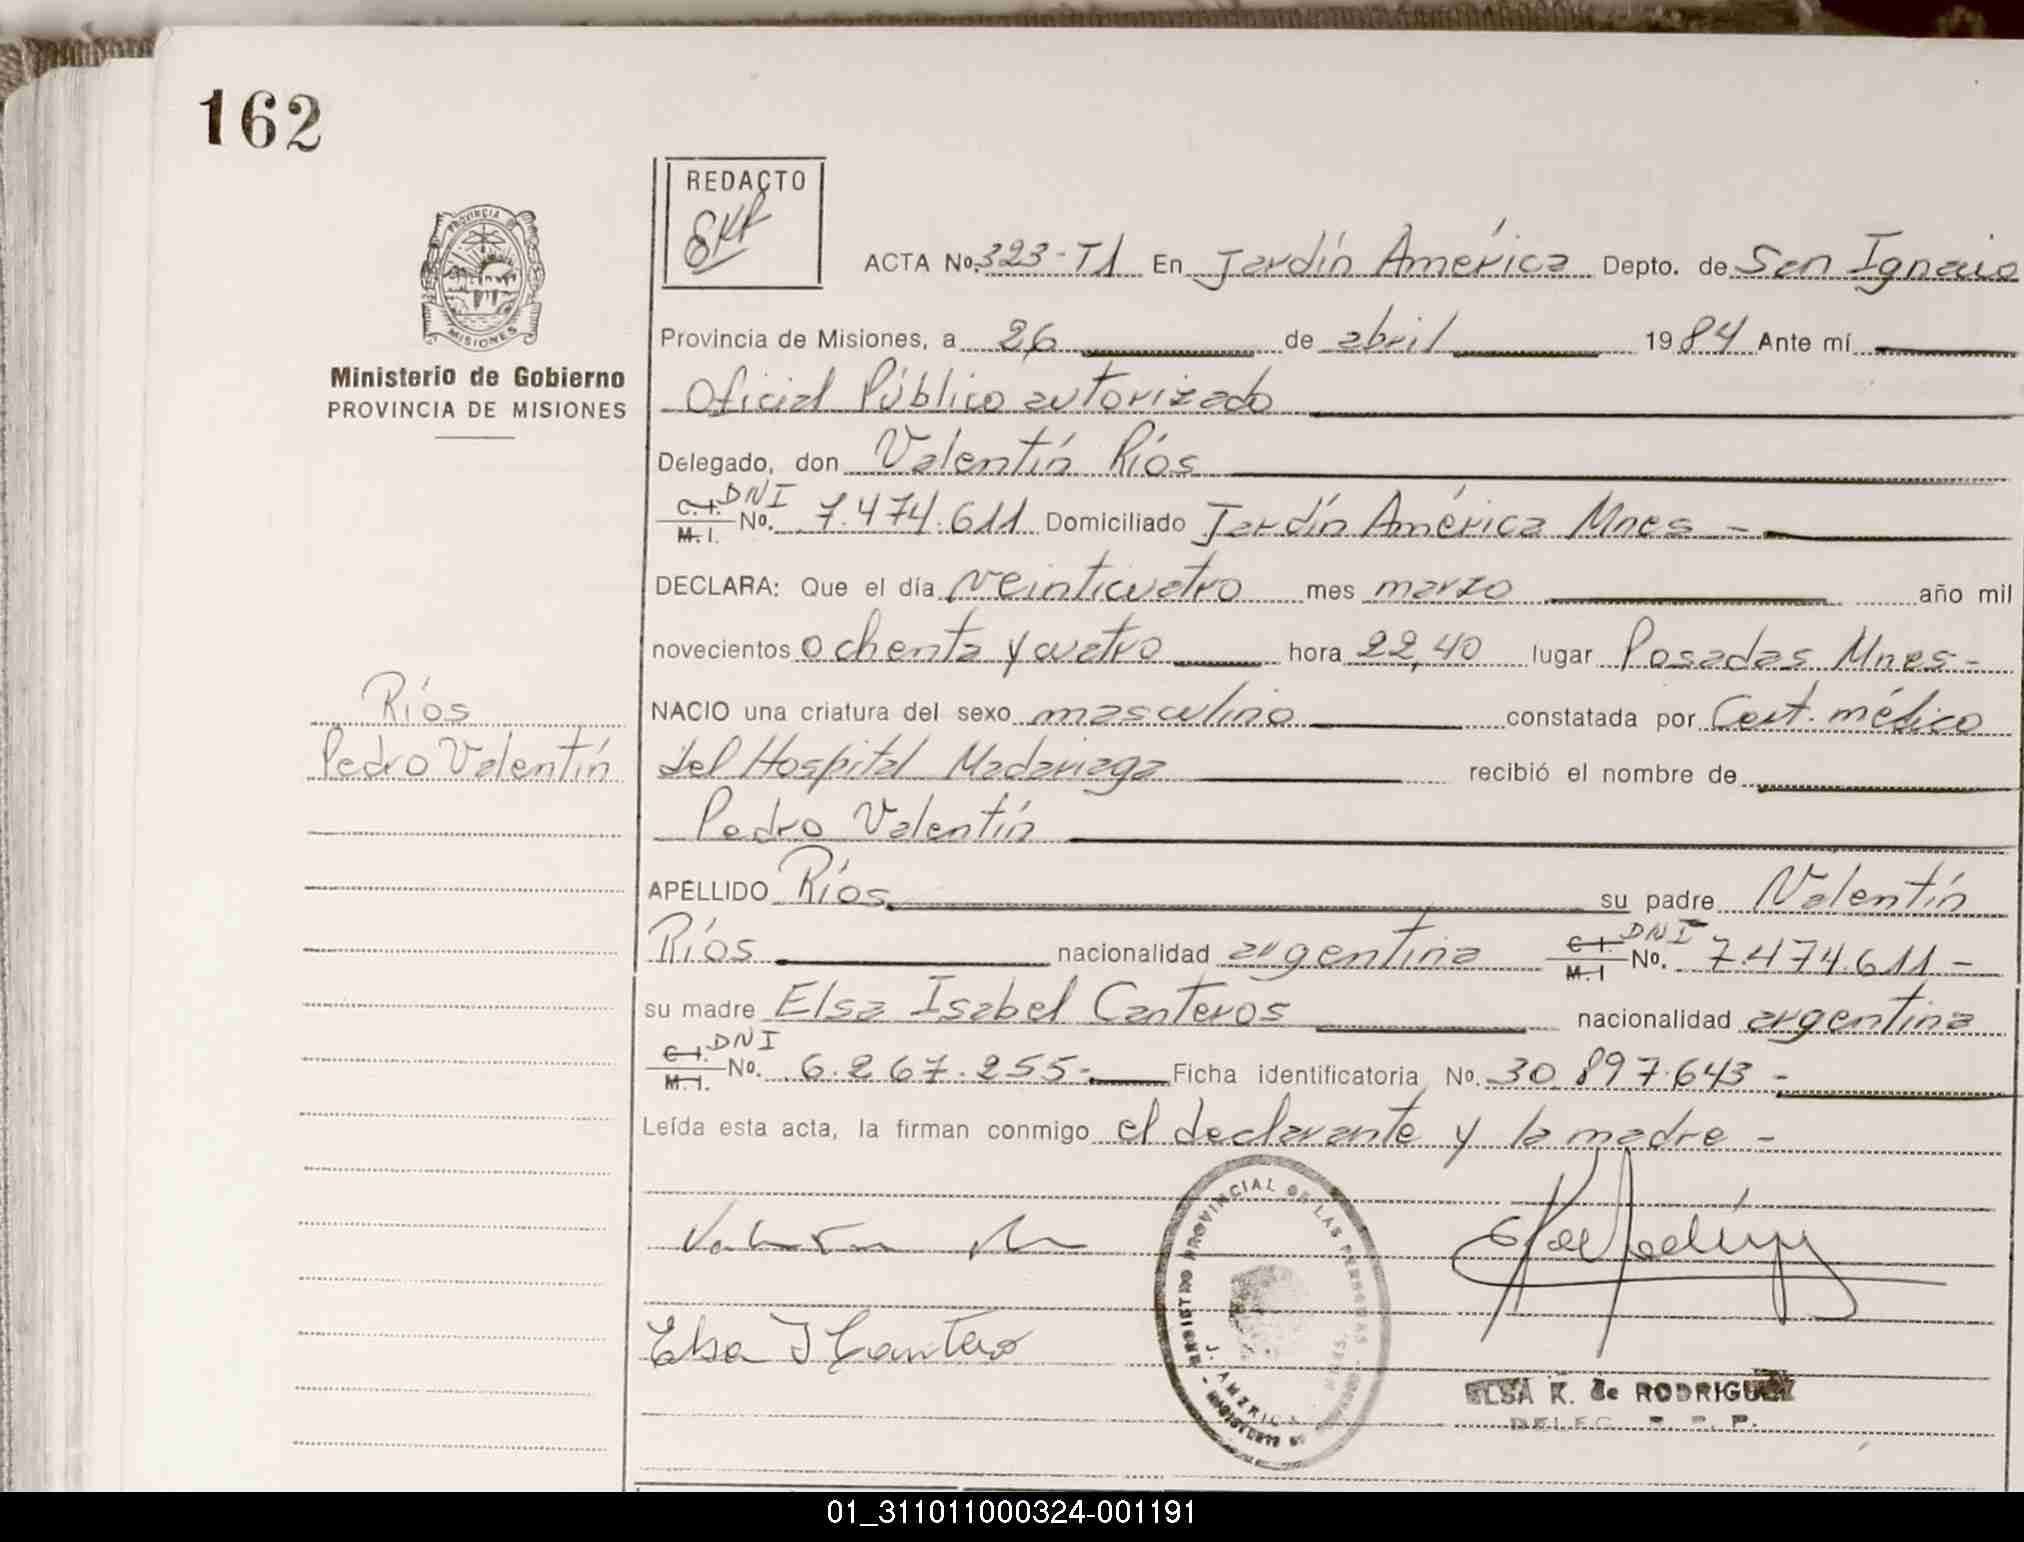 162
REDACTO
ACTA No. 323-T1 En Jardín América Depto. de San Ignacio
Provincia de Misiones, a 26 de abril 1984 Ante mí
Ministerio de Gobierno
PROVINCIA DE MISIONES
Oficial Público autorizado
Delegado, don Valentín Ríos
C.I. M.I. DNI No. 7.474.611 Domiciliado Jardín América Mnes -
DECLARA: Que el día veinticuatro mes marzo año mil
novecientos ochenta y cuatro hora 22,40 lugar Posadas Mnes-
Ríos
NACIO una criatura del sexo masculino constatada por Cert. médico
Pedro Valentín
del Hospital Madariaga recibió el nombre de
Pedro Valentín
APELLIDO Ríos su padre Valentín
Ríos nacionalidad argentina C.I. M.I DNI No. 7.474.611-
su madre Elsa Isabel Canteros nacionalidad argentina
C.I. M.I. DNI No. 6.267.255- Ficha identificatoria No. 30.897.643-
Leída esta acta, la firman conmigo el declarante y la madre -
REGISTRO PROVINCIAL DE LAS PERSONAS
J. AMERICA
Elsa I Cantero
ELSA K. de RODRIGUEZ
DELEG. R. P. P.
PROVINCIA D MISIONES
01_311011000324-001191